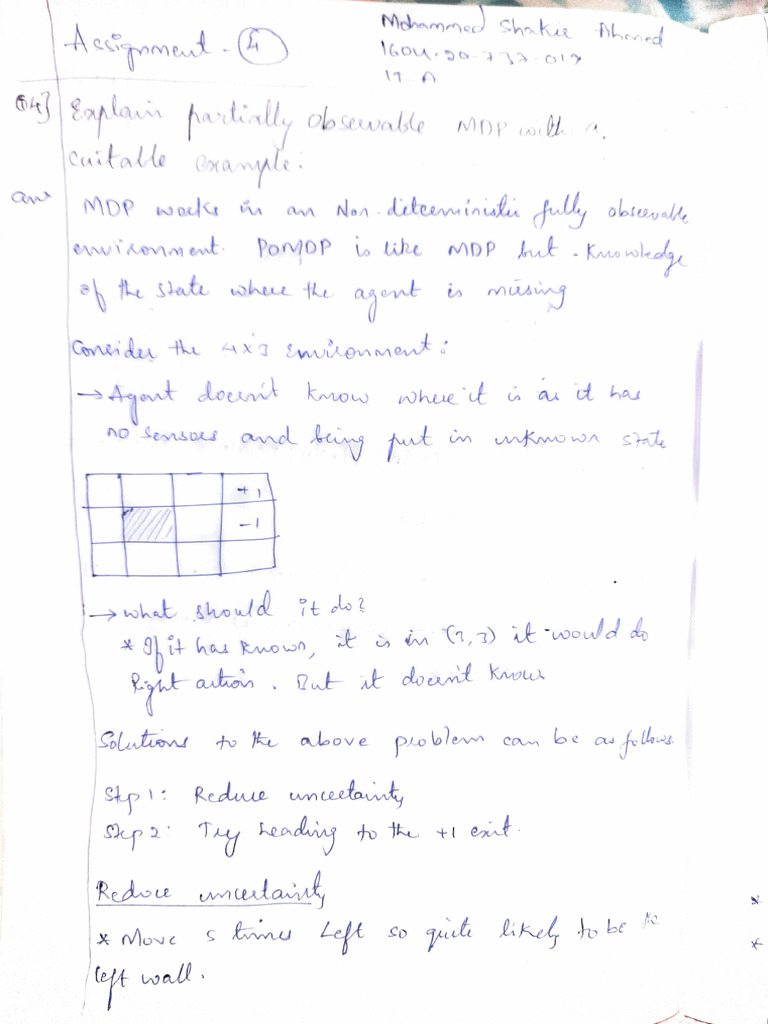 Assignment - 4
Mohammed Shakir Ahmed
1604-20-737-017
IT A
Q4] Explain partially observable MDP with a
suitable example:
ans MDP works in an Non-deterministic fully observable
environment. POMDP is like MDP but - knowledge
of the state where the agent is missing
Consider the 4x3 environment:
→ Agent doesn't know where it is as it has
no sensors and being put in unknown state
+1
-1
→ what should it do?
* If it has known, it is in (3,3) it would do
Right action. But it doesn't know
Solutions to the above problem can be as follows
Step 1: Reduce uncertainty
Step 2: Try heading to the +1 exit.
Reduce uncertainty
* Move 5 times Left so quite likely to be
left wall.
*
*